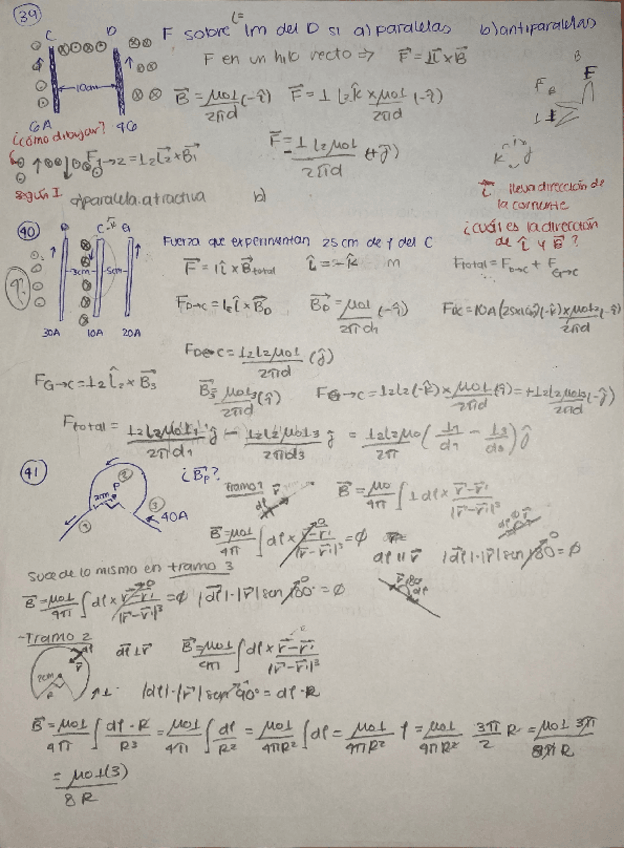 39
C D
F sobre l= 1m del D si a) paralelas b) antiparalelas
F en un hilo recto ⇒ F⃗ = I l⃗ × B⃗
10cm
B⃗ = μ0I/2πd (-î) F⃗ = I l2 k̂ × μ0I/2πd (-î)
6A
¿cómo dibujar?
F1→2 = I2 l⃗2 × B⃗1
F⃗ = I l2 μ0I/2πd (+ĵ)
según I
a) paralela. atractiva b)
lleva dirección de la corriente
40
D C G
Fuerza que experimentan 25 cm de l del C
¿cuál es la dirección de l̂ y B⃗?
3cm 5cm
30A 10A 20A
F⃗ = I l̂ × B⃗total l̂ = -k̂ m
Ftotal = FD→c + FG→c
FD→c = Ic l̂ × B⃗D B⃗D = μ0I/2πd1 (-î)
FD→c = I2l2μ0I/2πd (ĵ)
FG→c = I2 l̂2 × B⃗3 B⃗3 = μ0I3/2πd (î) FG→c = I2l2(-k̂) × μ0I/2πd (î) = +I2l2μ0I/2πd (-ĵ)
Ftotal = I2l2μ0I1/2πd1 ĵ - I2l2μ0I3/2πd3 ĵ = I2l2μ0/2π (I1/d1 - I3/d3) ĵ
41
¿B⃗p?
2cm P
40A
Tramo 1
dl r⃗
B⃗ = μ0/4π ∫ I dl × r⃗-r⃗'/|r⃗-r⃗'|³
B⃗ = μ0I/4π ∫ dl × r⃗-r⃗'/|r⃗-r⃗'|³ = ∅
dl ∥ r⃗ |dl⃗|·|r⃗| sen 180° = ∅
Sucede lo mismo en tramo 3
B⃗ = μ0I/4π ∫ dl × r⃗-r⃗'/|r⃗-r⃗'|³ = ∅ |dl⃗|·|r⃗| sen 180° = ∅
-Tramo 2
dl⃗ ⊥ r⃗ B⃗ = μ0I/4π ∫ dl × r⃗-r⃗'/|r⃗-r⃗'|³
2cm
|dl|·|r⃗| sen 90° = dl·R
B⃗ = μ0I/4π ∫ dl·R/R³ = μ0I/4π ∫ dl/R² = μ0I/4πR² ∫ dl = μ0I/4πR² l = μ0I/4πR² 3π/2 R = μ0I 3π/8π R
= μ0I(3)/8R